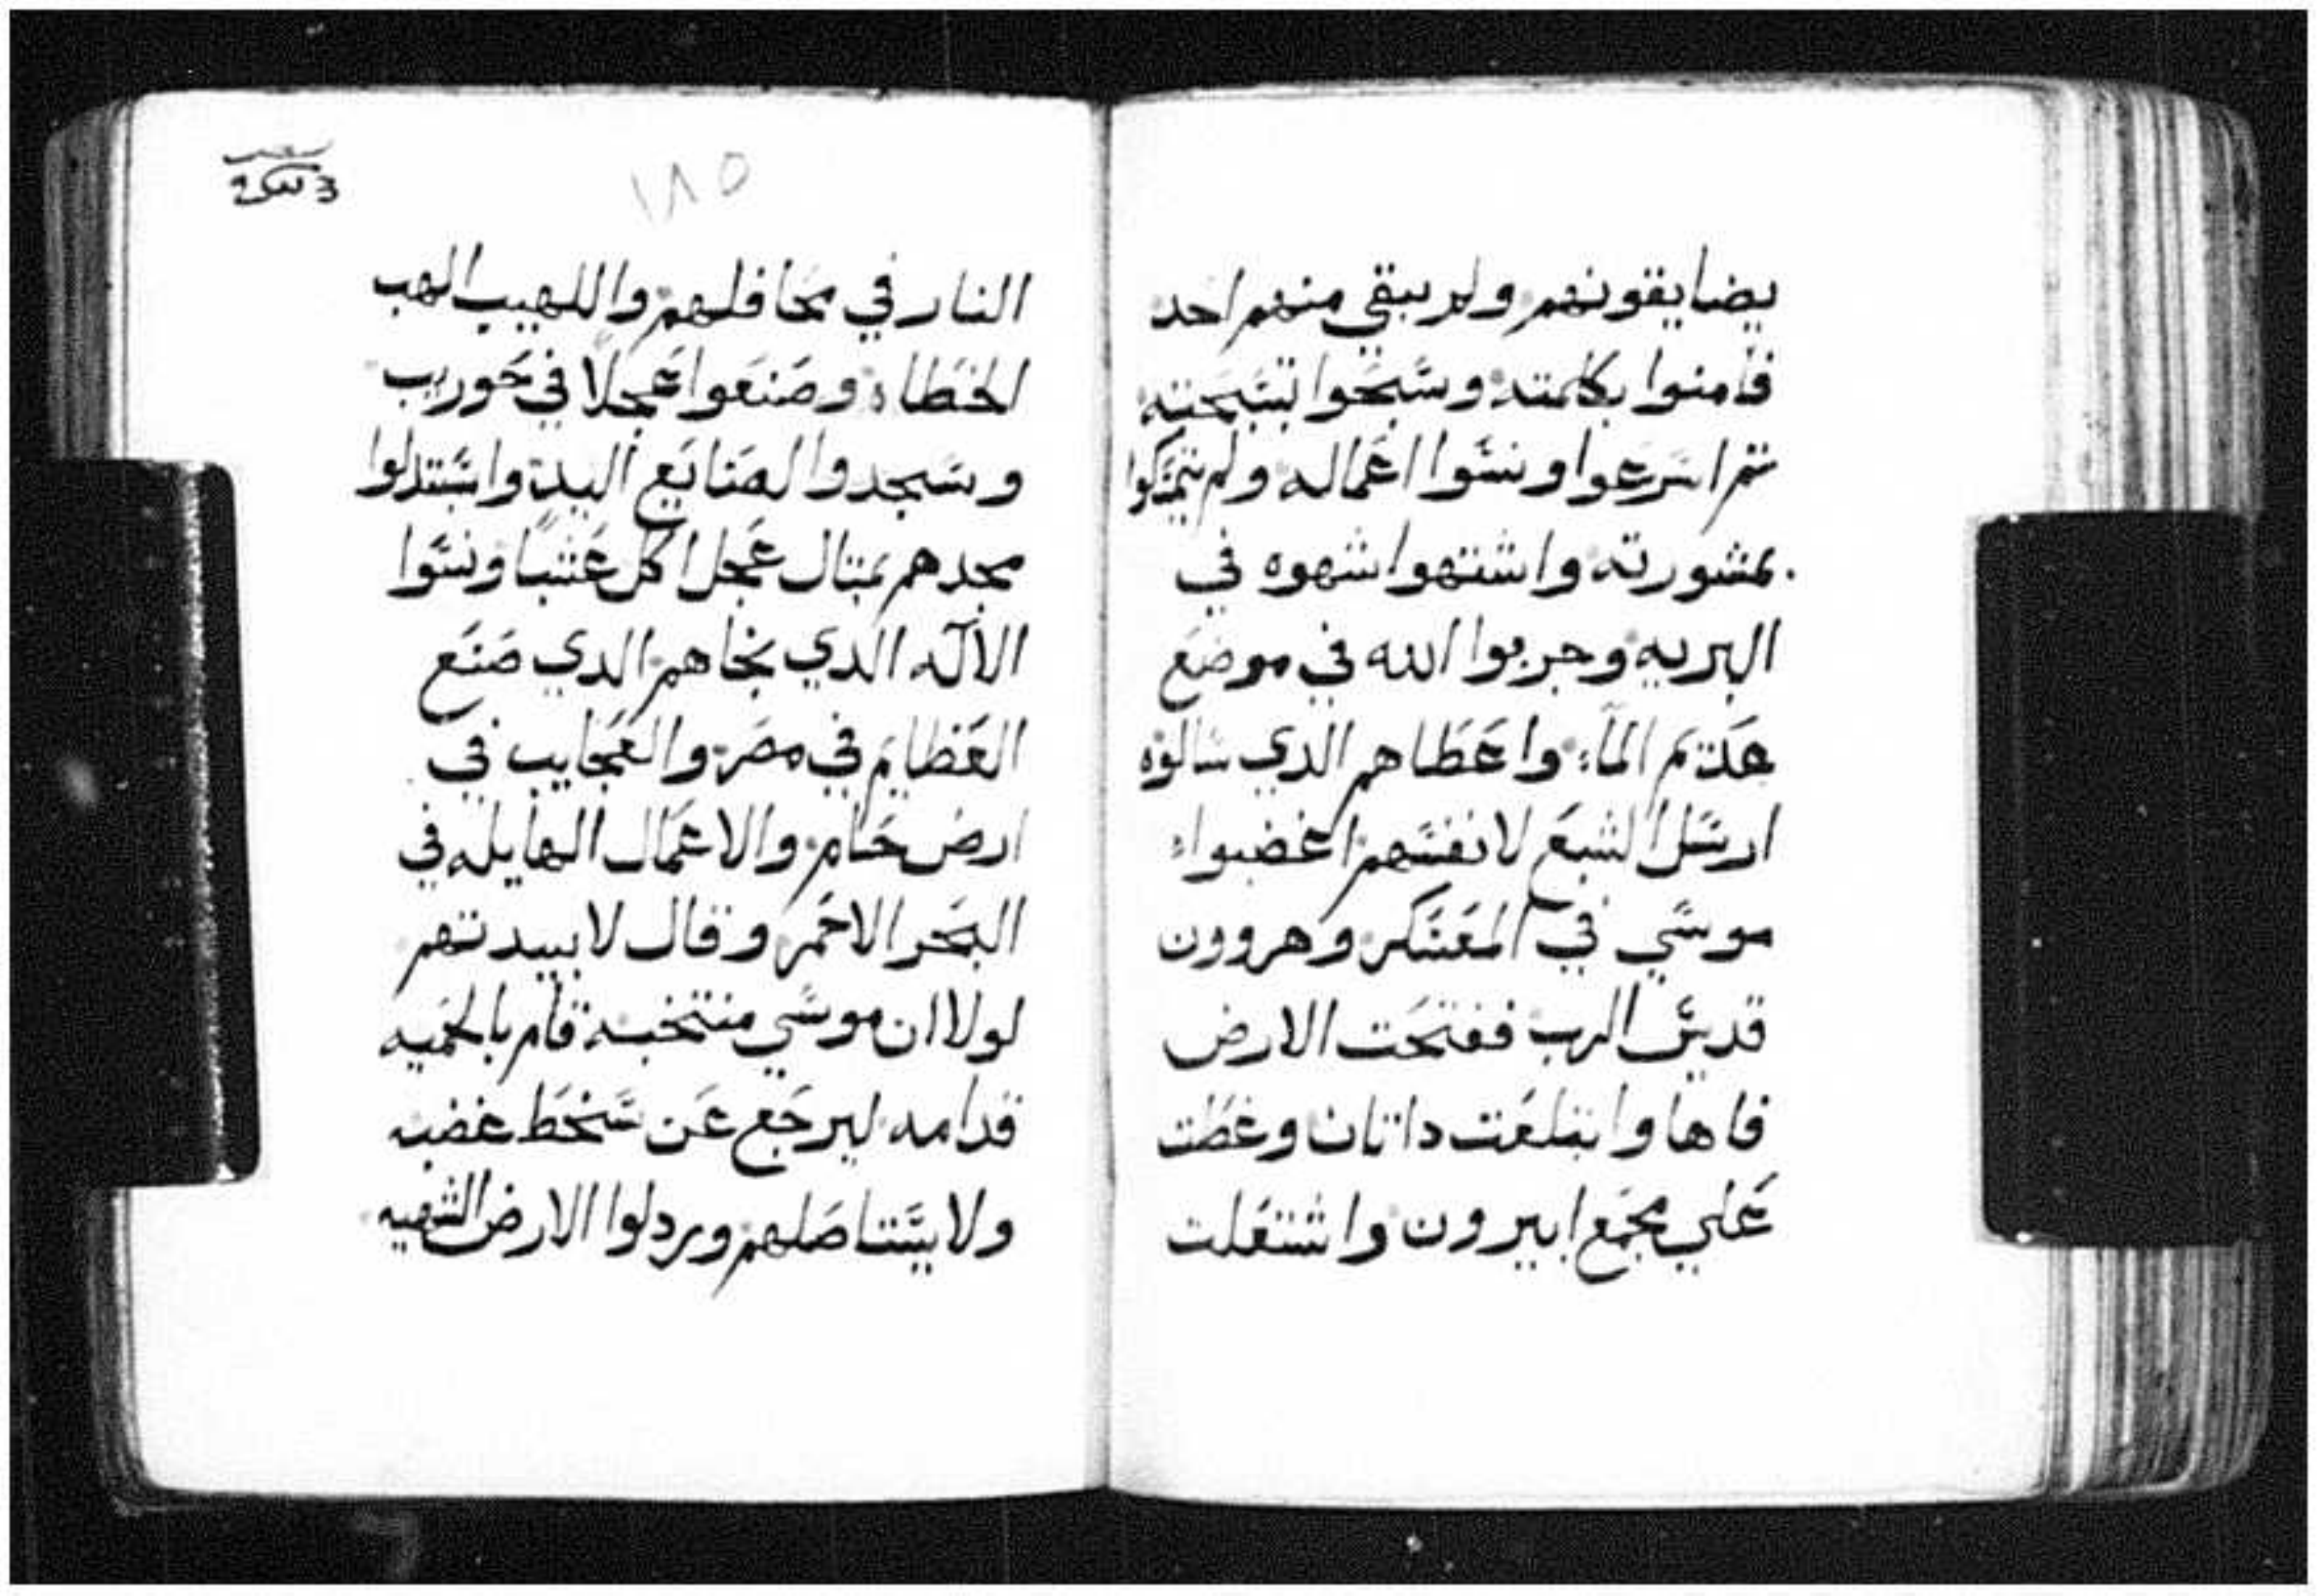 يضايقونهم ولم يبقي منهم احد
فامنوا بكلمته وسَبحَوا تسَبحَته
تم اسَرعوا ونسَوا اعَماله ولم يتمسَكوا
بمشورته واشتهوا شهوه في
البريه وجربوا الله في موضَع
عَديم المآء واعَطاهم الدي سَالوه
ارسَل الشبعَ لانفسَهم اغضبوا
موسَي في المعَسَكر وهروون
قديسَ الرب ففتحَت الارض
فاها وابتلعَت داتان وغطت
عَلي مجمَع ابيرون واشتعَلت
١٨٥
النار في محَافلهم واللهيب الهب
الخطاه وصَنعَوا عَجلاً في حَوريب
وسَجدوا لصَنايَع اليد واسَتبدلوا
مجدهم بمتال عَجل اكل عَشباً ونسَوا
الالَه الدي نجاهم الدي صَنَع
العَظايم في مصَر والعَجايب في
ارض حَام والاعَمال الهايله في
البحَر الاحَمر وقال لابيدتهم
لولا ان موسَي منتخبه قام بالحَميه
قدامه ليرجَع عَن سَخط غضبه
ولا يسَتاصَلهم وردلوا الارض الشهيه